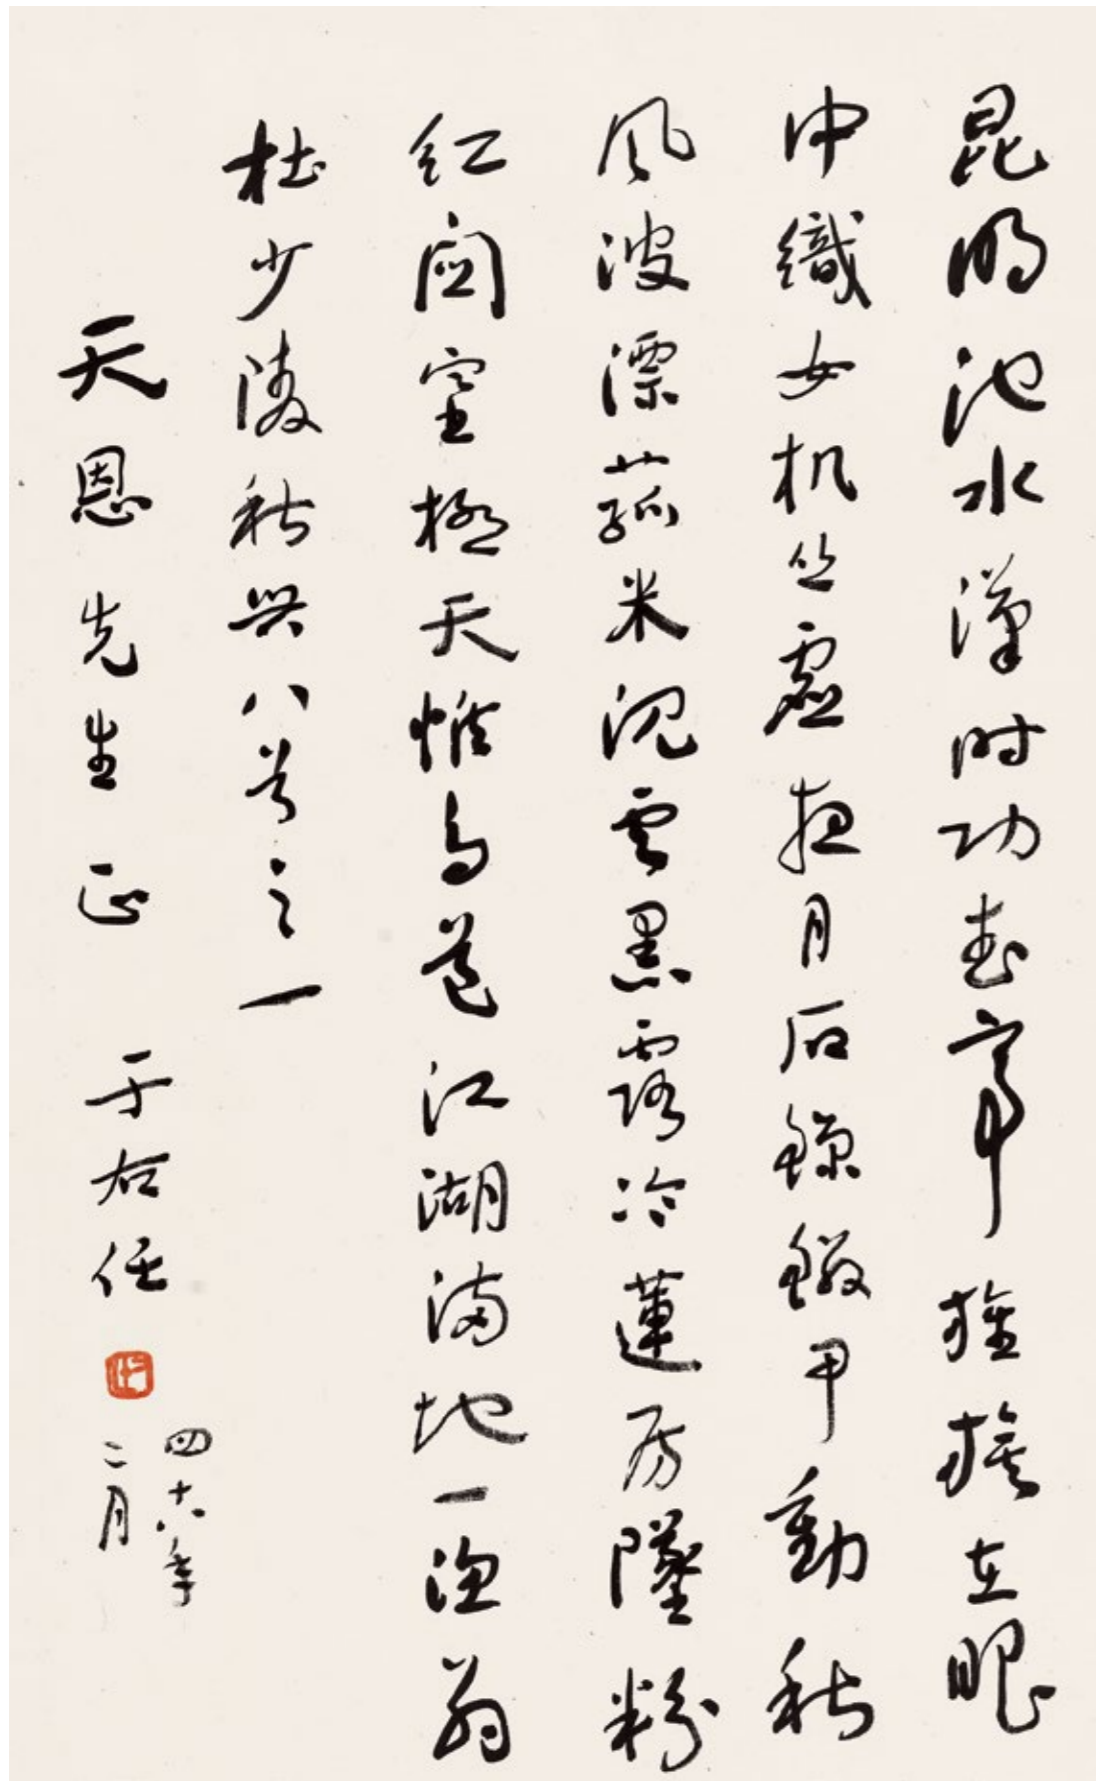 昆明池水漢時功武帝旌旗在眼
中織女机丝虛夜月石鯨鱗甲動秋
風波漂菰米沈雲黑露冷蓮房墜粉
紅關塞極天惟鳥道江湖滿地一漁翁
杜少陵秋興八首之一
天恩先生正 于右任
四十六年
二月